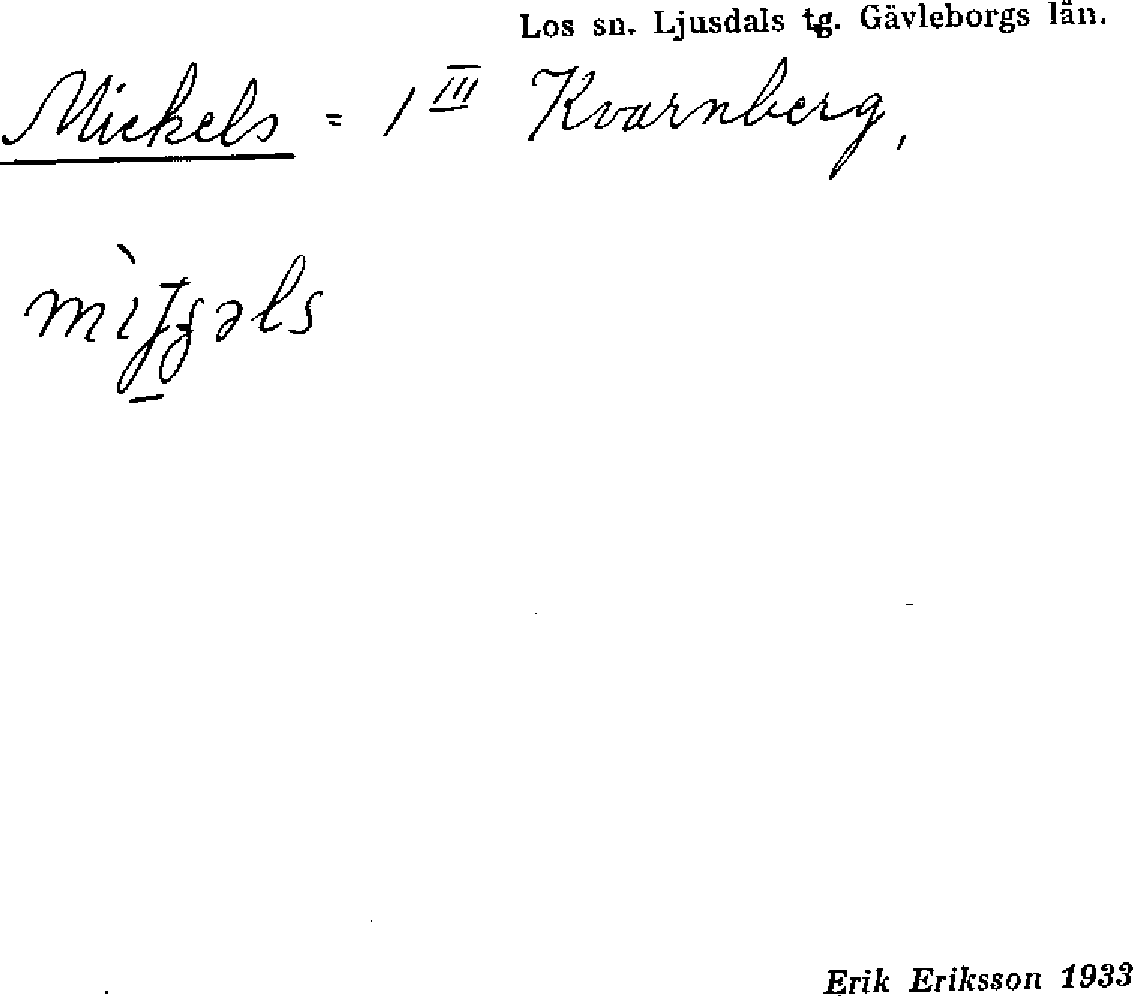 Los sn. Ljusdals tg. Gävleborgs län.
Mickels = 1 III Kvarnberg,
Erik Eriksson 1933